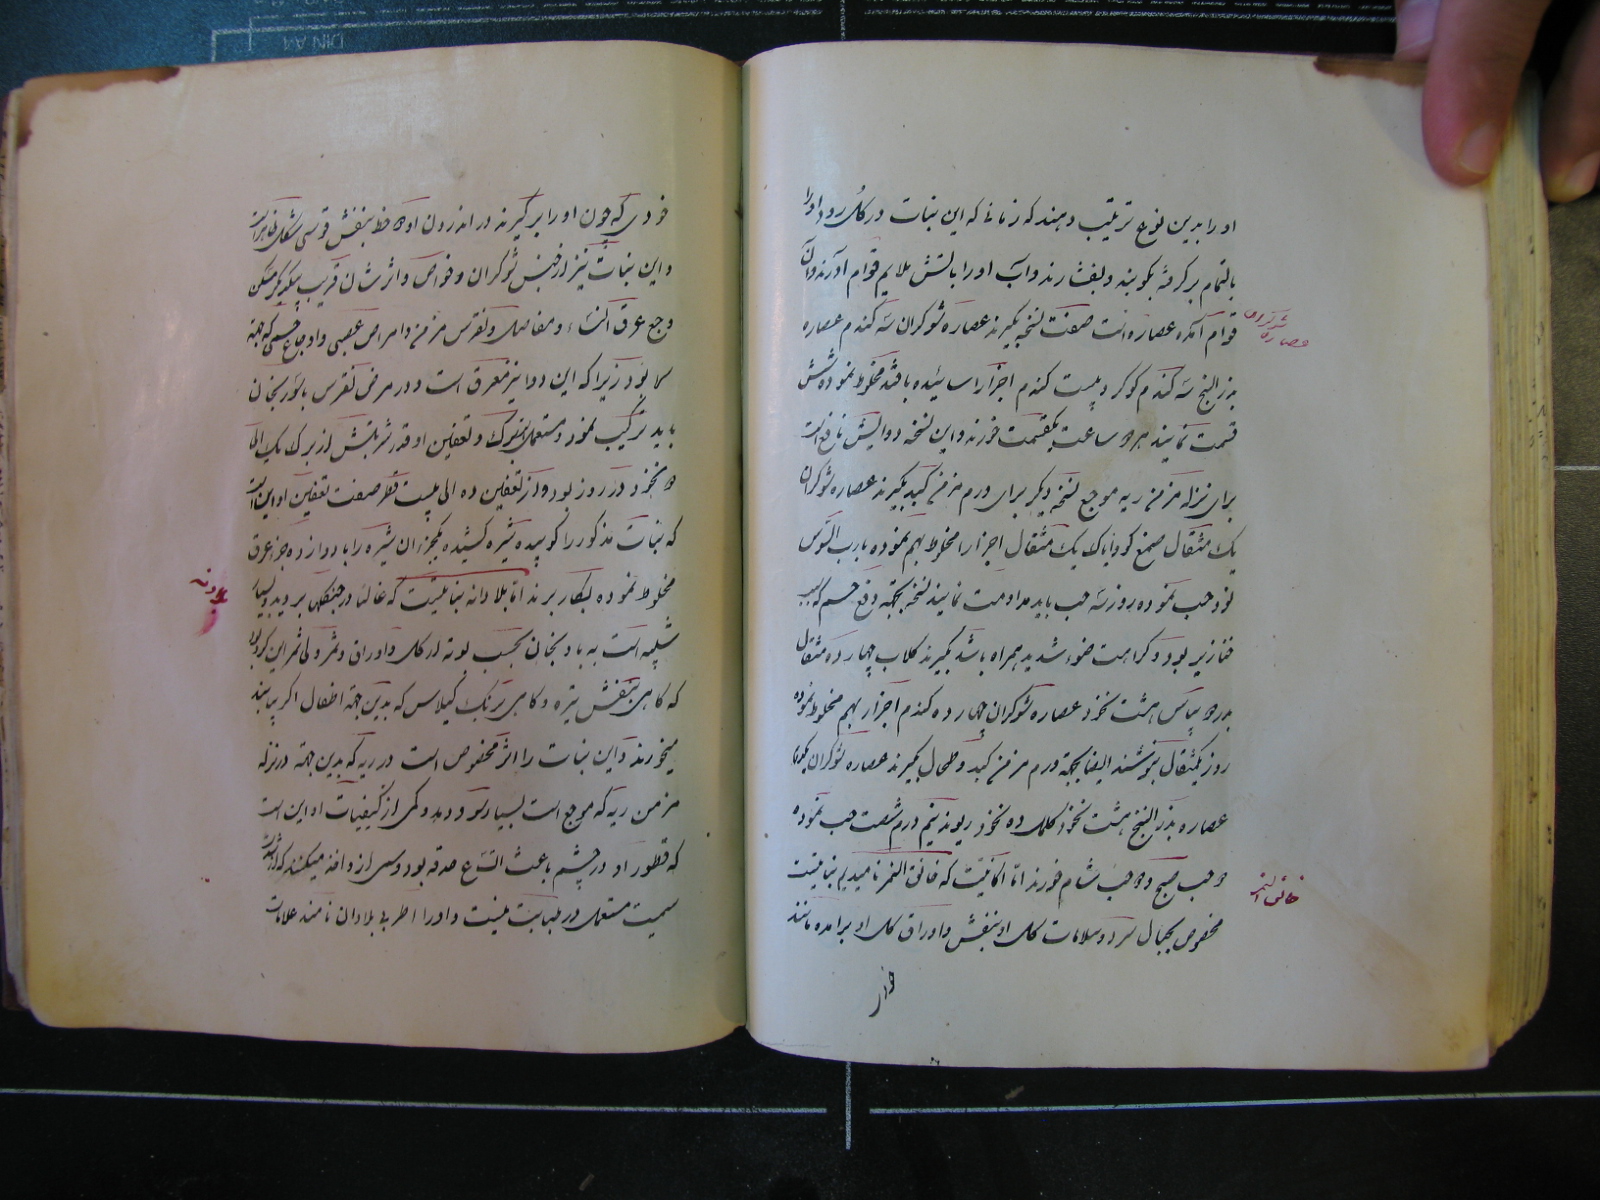 او را بدین نوع ترتیب دهند که زمانی که این نبات در گل رود او را
بالتمام برگرفته بکوبند و بفشارند و آب او را باتش ملایم قوام آورند و آن
قوام آمده عصاره است صفت نسخه بگیرند عصاره شوکران سه کندم عصاره
بذر البنج سه کندم کوکرد بیست کندم اجزا را سائیده با قند مخلوط نموده شش
قسمت نمایند هر دو ساعت یکقسمت خورند و این نسخه دوایش نافع است
برای نزله مزمن ریه موجع نسخه دیگر برای ورم مزمن کبد بگیرند عصاره شوکران
یک مثقال صمغ یک مثقال اجزا را مخلوط بهم نموده با رب السوس
نود حب نموده روزی سه حب باید مداومت نمایند نسخه بجهة وقع جسم که بسبب
خنازیر بود و کراهت ضوء شدید همراه باشد بگیرند کلاب چهارده مثقال
هشت نخود عصاره شوکران چهارده کندم اجزا را بهم مخلوط نموده
روز یکمثقال بنوشند ایضا بجهة ورم مزمن کبد و طحال بگیرند عصاره شوکران
عصاره بذر البنج هشت نخود کلمل ده نخود ریوند نیم درم شصت حب نموده
دو حب صبح و دو حب شام خورند اما اکانیت که خانق النمر نامیدیم نباتیست
مخصوص بجبال سرد و علامات گل او بنفش و اوراق گل او برآمده مانند
خود
عصاره شوکران
خانق النمر
خودی که چون او را برگیرند در اندرون او دو خط بنفش قوسی شکل ظاهر است
و این نبات نیز از جنس شوکران و خواص و اثرشان قریب بیکدیگر مسکن
وجع عرق النساء و مفاصل و نقرس مزمن و امراض عصبی و اوجاع جسمی که بجهة
بود زیرا که این دوا نیز معرق است و در مرض نقرس با سورنجان
باید ترکیب نمود و مستعمل برک و تعفین او قدر شربتش از برک یک الی
دو نخود در روز بود و از تعفین ده الی بیست قطره صفت تعفین او این است
که نبات مذکور را کوبیده شیره کشیده یکجزء از آن شیره را با دوازده جزء عرق
مخلوط نموده بکار برند اما بلادانه نباتیست که غالبا در جنکلها بروید و بسیار
شبیه است به بادنجان بحسب بوته از گل و اوراق و ثمر ولی ثمر این کرد بود
که گاهی بنفش تیره و گاهی برنک کیلاس که بدین جهة اطفال اگر بیابند
میخورند و این نبات را اثر مخصوص است در ریه که بدین جهة در نزله
مزمن ریه که موجع است بسیار سود دهد و یکی از کیفیات او این است
که قطور او در چشم باعث اتساع حدقه بود و بسی از دافنه میکنند که از شدت
سمیت مستعمل در طبابت نیست و او را اطریه بلادان نامند علامات
بلادونه